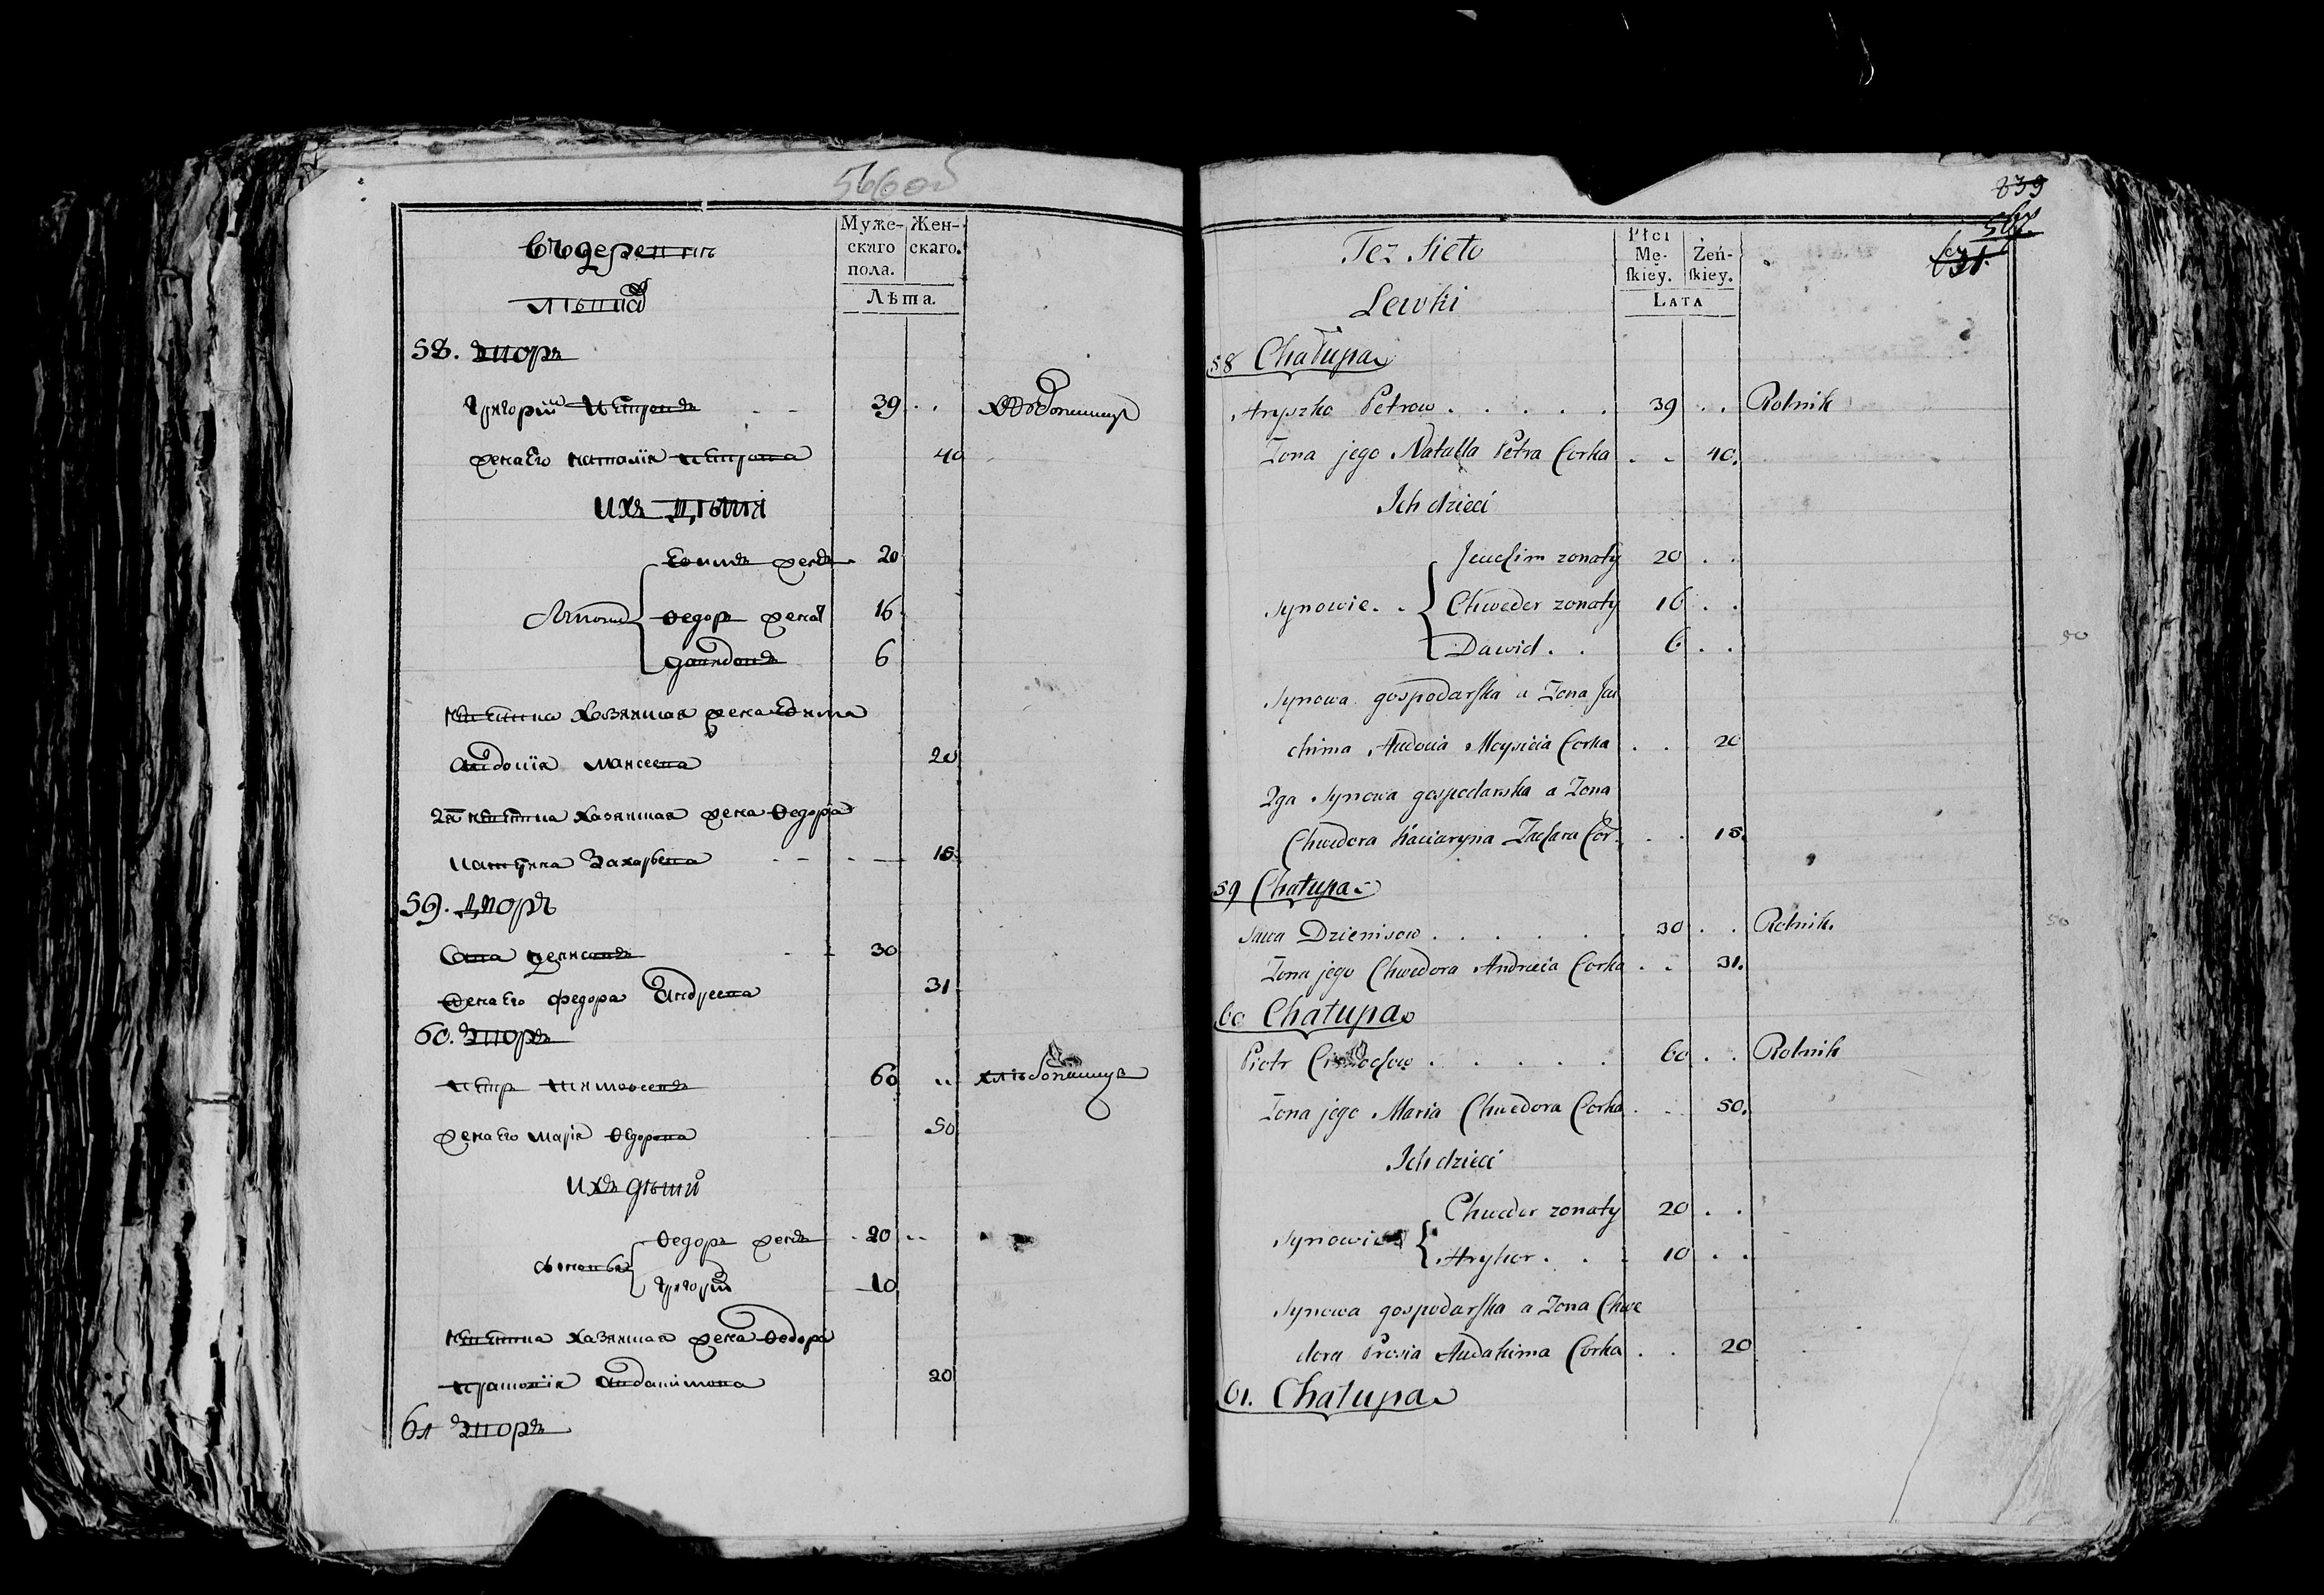 566 об
Муже-
скаго
пола.
Жен-
скаго.
Лѣта.
въ деревнѣ
58. дворъ
Григорій Петровъ 39 .. хлѣбопашецъ
жена Его наталія петрова 40
ихъ дѣти
Ефимъ женатъ 20
Сыновья
Федоръ женатъ 16
6
невестка хозяйская жена Ефима
авдотія моисеева 20
2я невестка хазяйская жена Федора
катерина Захарьева 15
59. дворъ
Сава денисовъ 30
жена Его федора Андреева 31
60. дворъ
петръ тимофеевъ 60 .. хлѣбопашецъ
жена Его марія Федорова 50
ихъ дѣти
Федоръ женатъ 20 ..
сыновья
григорій 10
невестка хазяйская жена Федора
20
61 дворъ
839
Płci
Mę-
ſkiey.
Żeń-
ſkiey.
Lata
Też Sieło
Lewki
58 Chałupa
Hryszko Petrow . . . . . 39 . . Rolnik
Zona jego Natalla Petra Corka . . 40.
Ich dzieci
Jeuchim zonaty 20 . .
Synowie . .
Chweder zonaty 16 . .
Dawid . . 6 . .
Synowa gospodarska a Zona Jeu
chima Audocia Moysieia Corka . . 20
2ga Synowa gospodarska a Zona
Chwedora Kaciaryna Zachara Cor. . . 15.
59 Chałupa
Sawa Dzienisow . . . . . . 30 . . Rolnik.
Zona jego Chwedora Andreia Corka . . 31.
60 Chałupa
Piotr . . . . . 60 . . Rolnik
Zona jego Maria Chwedora Corka . . 50.
Ich dzieci
Chweder zonaty 20 . .
Synowie
Hryhor . . . 10 . .
Synowa gospodarska a Zona Chwe
dora Prosia Audakima Corka . . 20
61. Chałupa